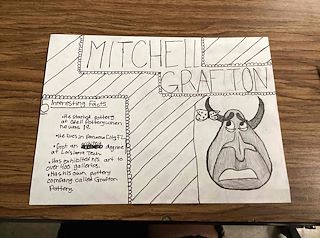 MITCHELL
GRAFTON
Interesting Facts
• He started pottery
at Odell Pottery when
he was 19.
• He lives in Panama City FL
• Got an degree
at Louisiana Tech
• Has exhibited his art to
over 400 galleries.
• Has his own pottery
company called Grafton
Pottery.